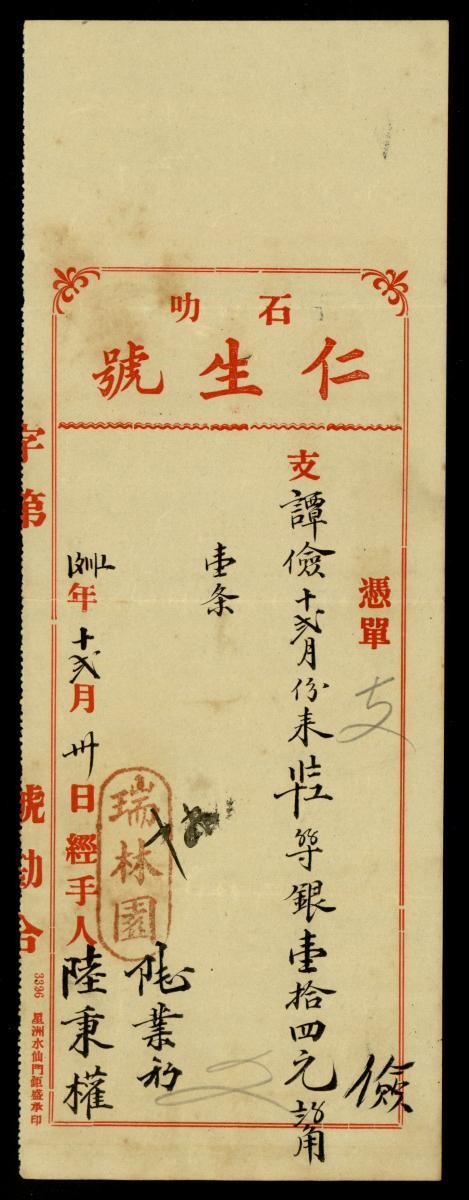 石叻
仁生號
憑單
支
支譚儉十弍月份來
等銀壹拾四元
角
儉
壹条
瑞林園
年十弍月卅日經手人陸秉權
字第
號勘合
3396 星洲水仙門鉅盛承印